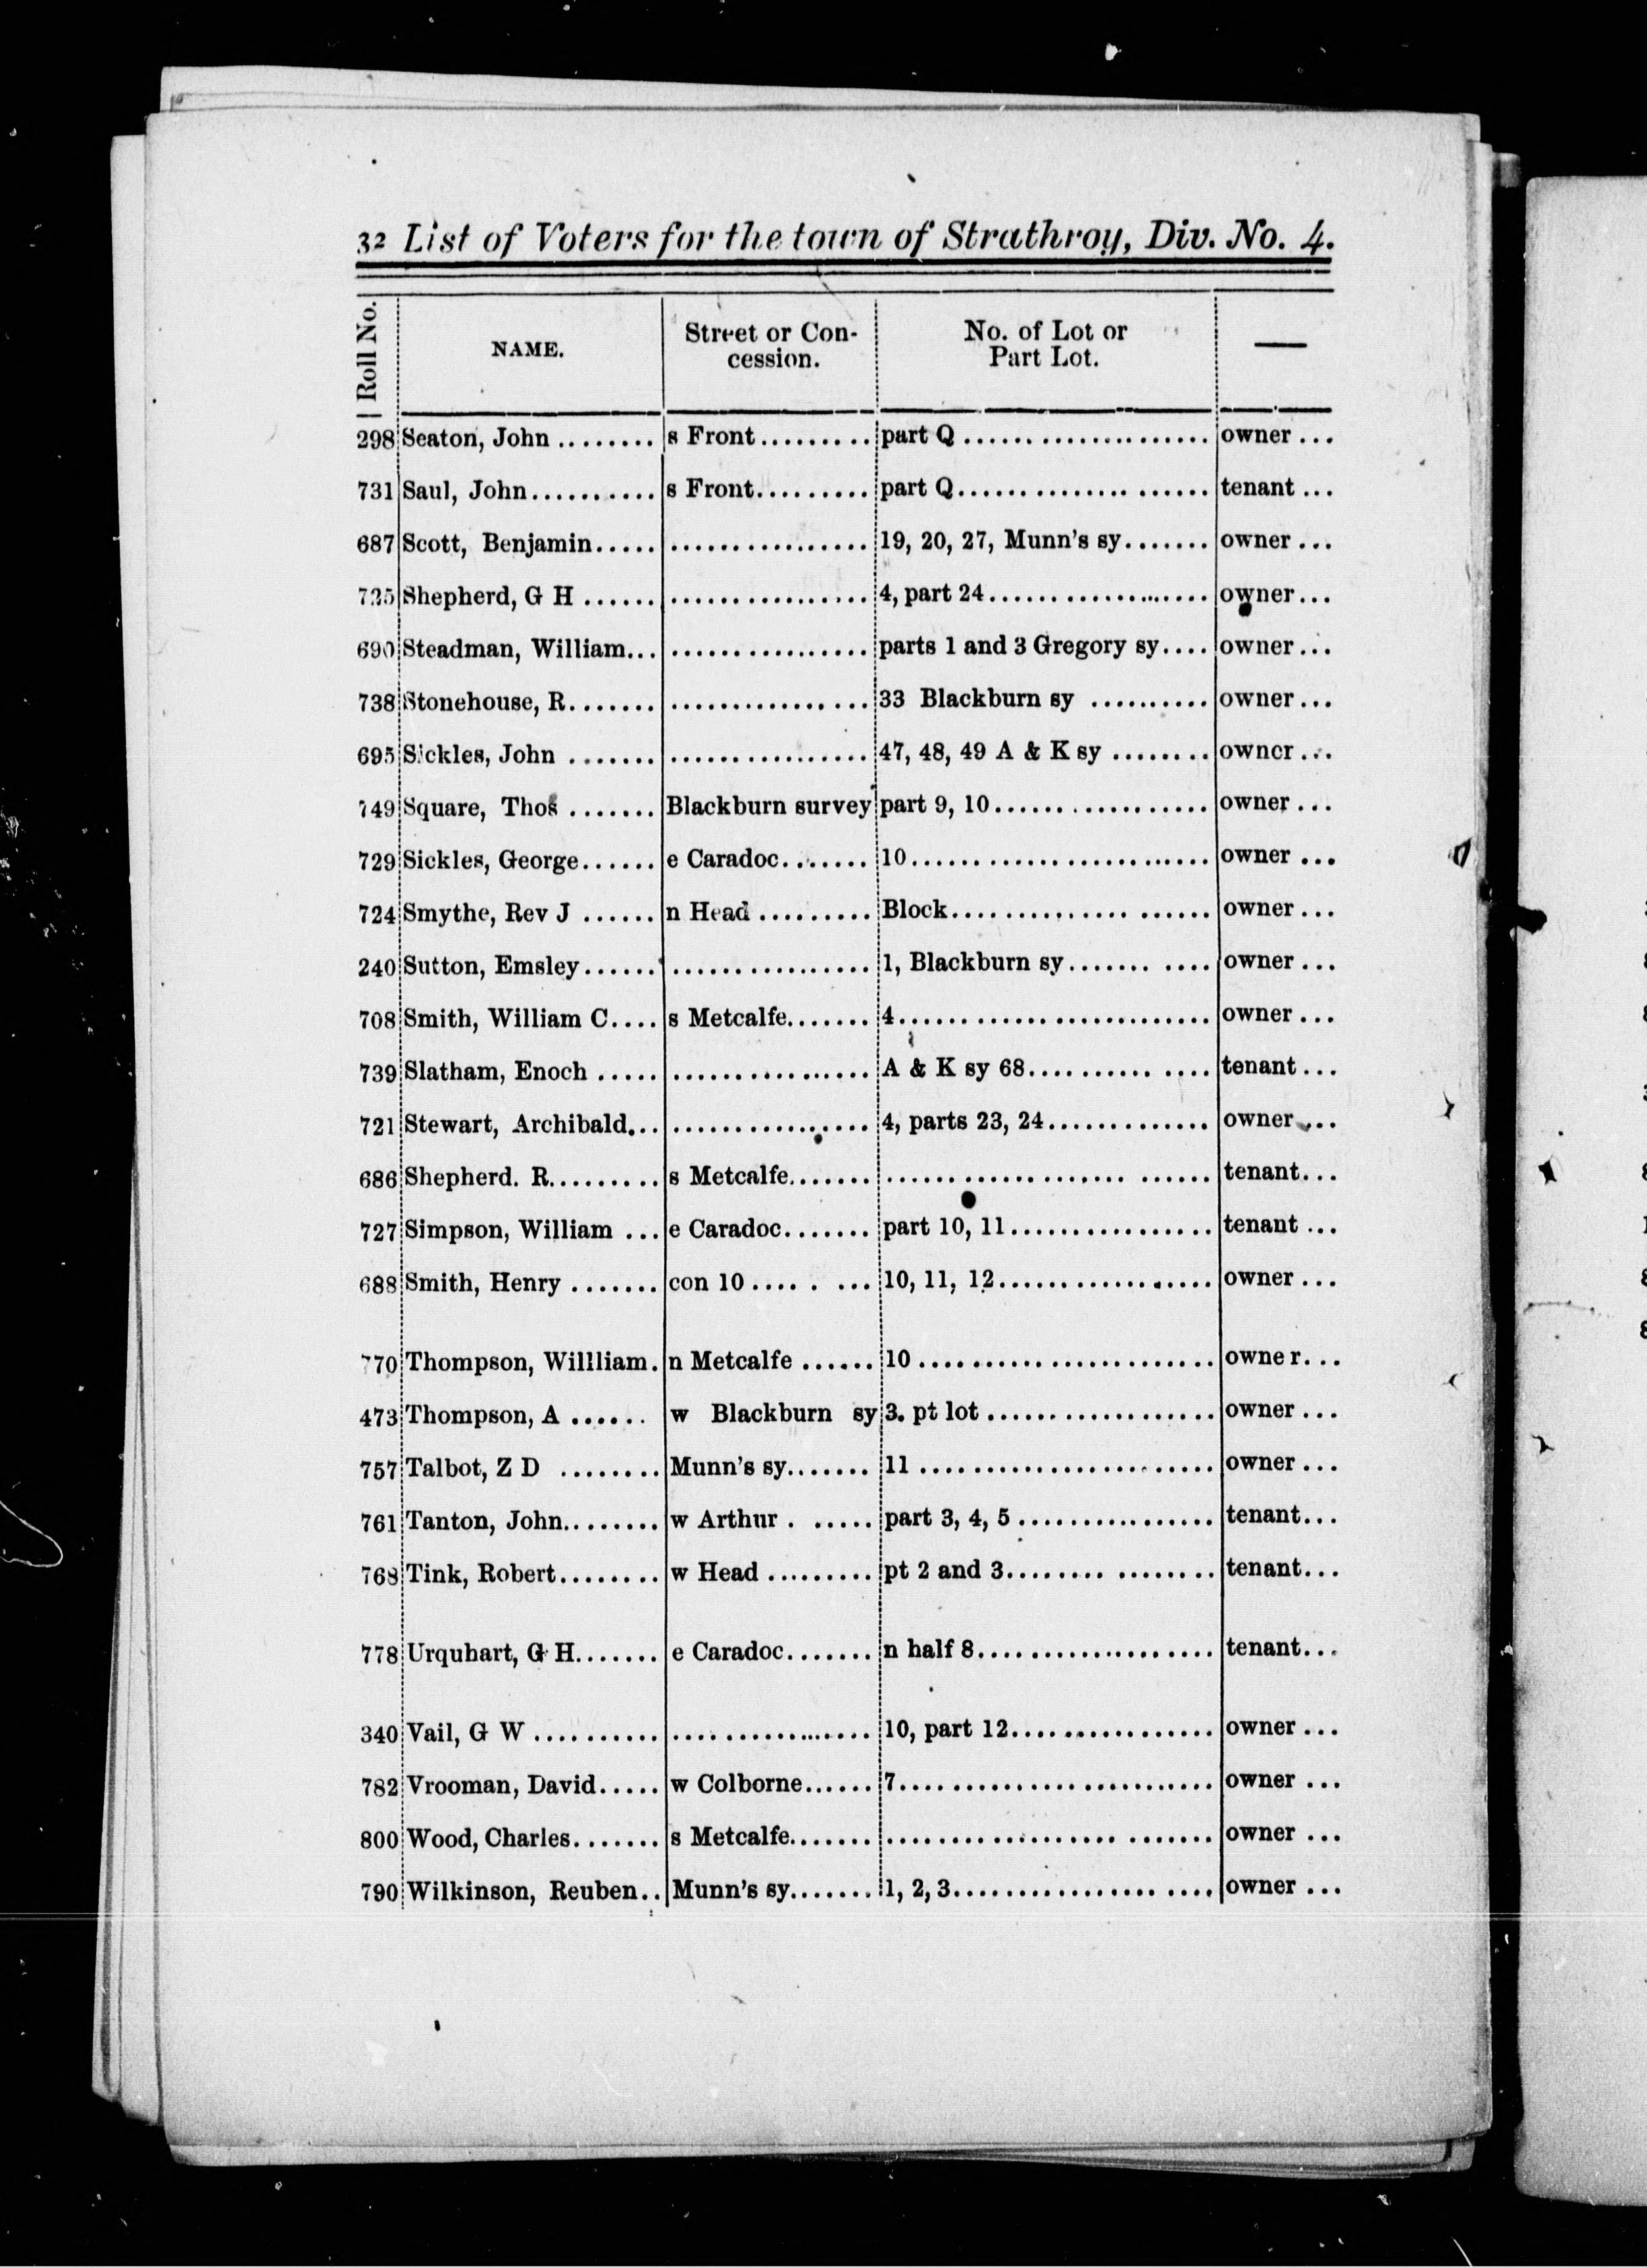 32 List of Voters for the town of Strathroy, Div. No. 4.
Roll No. NAME. Street or Con-cession. No. of Lot or Part Lot. —
298 Seaton, John ........ s Front......... part Q ...................... owner ...
731 Saul, John.......... s Front......... part Q...................... tenant ...
687 Scott, Benjamin..... ................ 19, 20, 27, Munn's sy....... owner ...
725 Shepherd, G H ...... ................ 4, part 24.................... owner...
690 Steadman, William... ................ parts 1 and 3 Gregory sy.... owner...
738 Stonehouse, R....... ................ 33 Blackburn sy .......... owner...
695 Sickles, John ....... ................ 47, 48, 49 A & K sy ........ owner ...
749 Square, Thos ....... Blackburn survey part 9, 10................... owner ...
729 Sickles, George...... e Caradoc....... 10......................... owner ...
724 Smythe, Rev J ...... n Head ......... Block..................... owner ...
240 Sutton, Emsley...... ................ 1, Blackburn sy....... .... owner ...
708 Smith, William C.... s Metcalfe....... 4.......................... owner ...
739 Slatham, Enoch ..... ................ A & K sy 68.......... .... tenant ...
721 Stewart, Archibald... ................ 4, parts 23, 24............. owner ...
686 Shepherd. R......... s Metcalfe....... ...................... ...... tenant...
727 Simpson, William ... e Caradoc....... part 10, 11................ tenant ...
688 Smith, Henry ....... con 10 .... . ... 10, 11, 12.................. owner ...
770 Thompson, Willliam. n Metcalfe ...... 10 ........................ owne r...
473 Thompson, A ...... w Blackburn sy 3. pt lot ................... owner ...
757 Talbot, Z D ........ Munn's sy....... 11 ........................ owner ...
761 Tanton, John........ w Arthur . ..... part 3, 4, 5 ................ tenant...
768 Tink, Robert........ w Head ......... pt 2 and 3........ ........ tenant...
778 Urquhart, G H....... e Caradoc....... n half 8.................... tenant...
340 Vail, G W .......... ................ 10, part 12................ owner ...
782 Vrooman, David..... w Colborne...... 7.......................... owner ...
800 Wood, Charles....... s Metcalfe....... ................... ....... owner ...
790 Wilkinson, Reuben.. Munn's sy....... 1, 2, 3................. .... owner ...